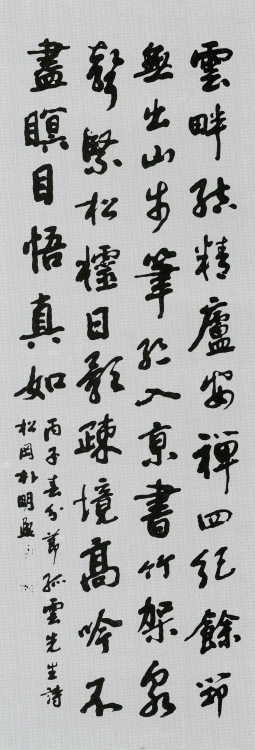 雲畔結精廬安禪四紀餘筇
無出山步筆絶入京書竹架泉
聲緊松欞日影疎境高吟不
盡瞑目悟真如
丙子春分節孤雲先生詩
松岡朴明